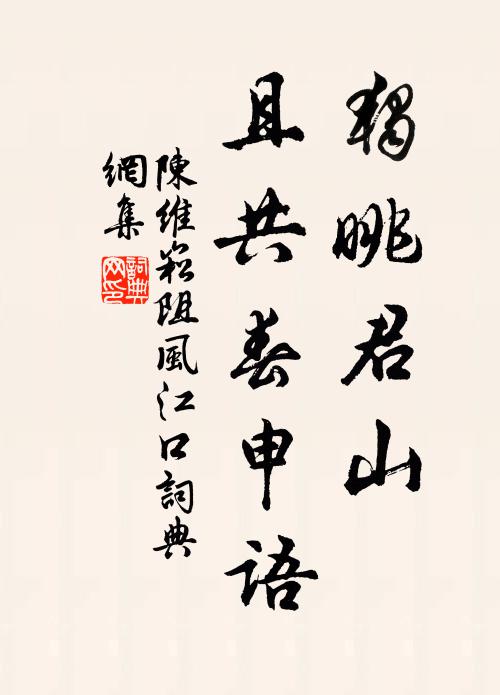 獨眺君山
且共春申語
陳維崧阻風江口詞典
網集
詞典
网印